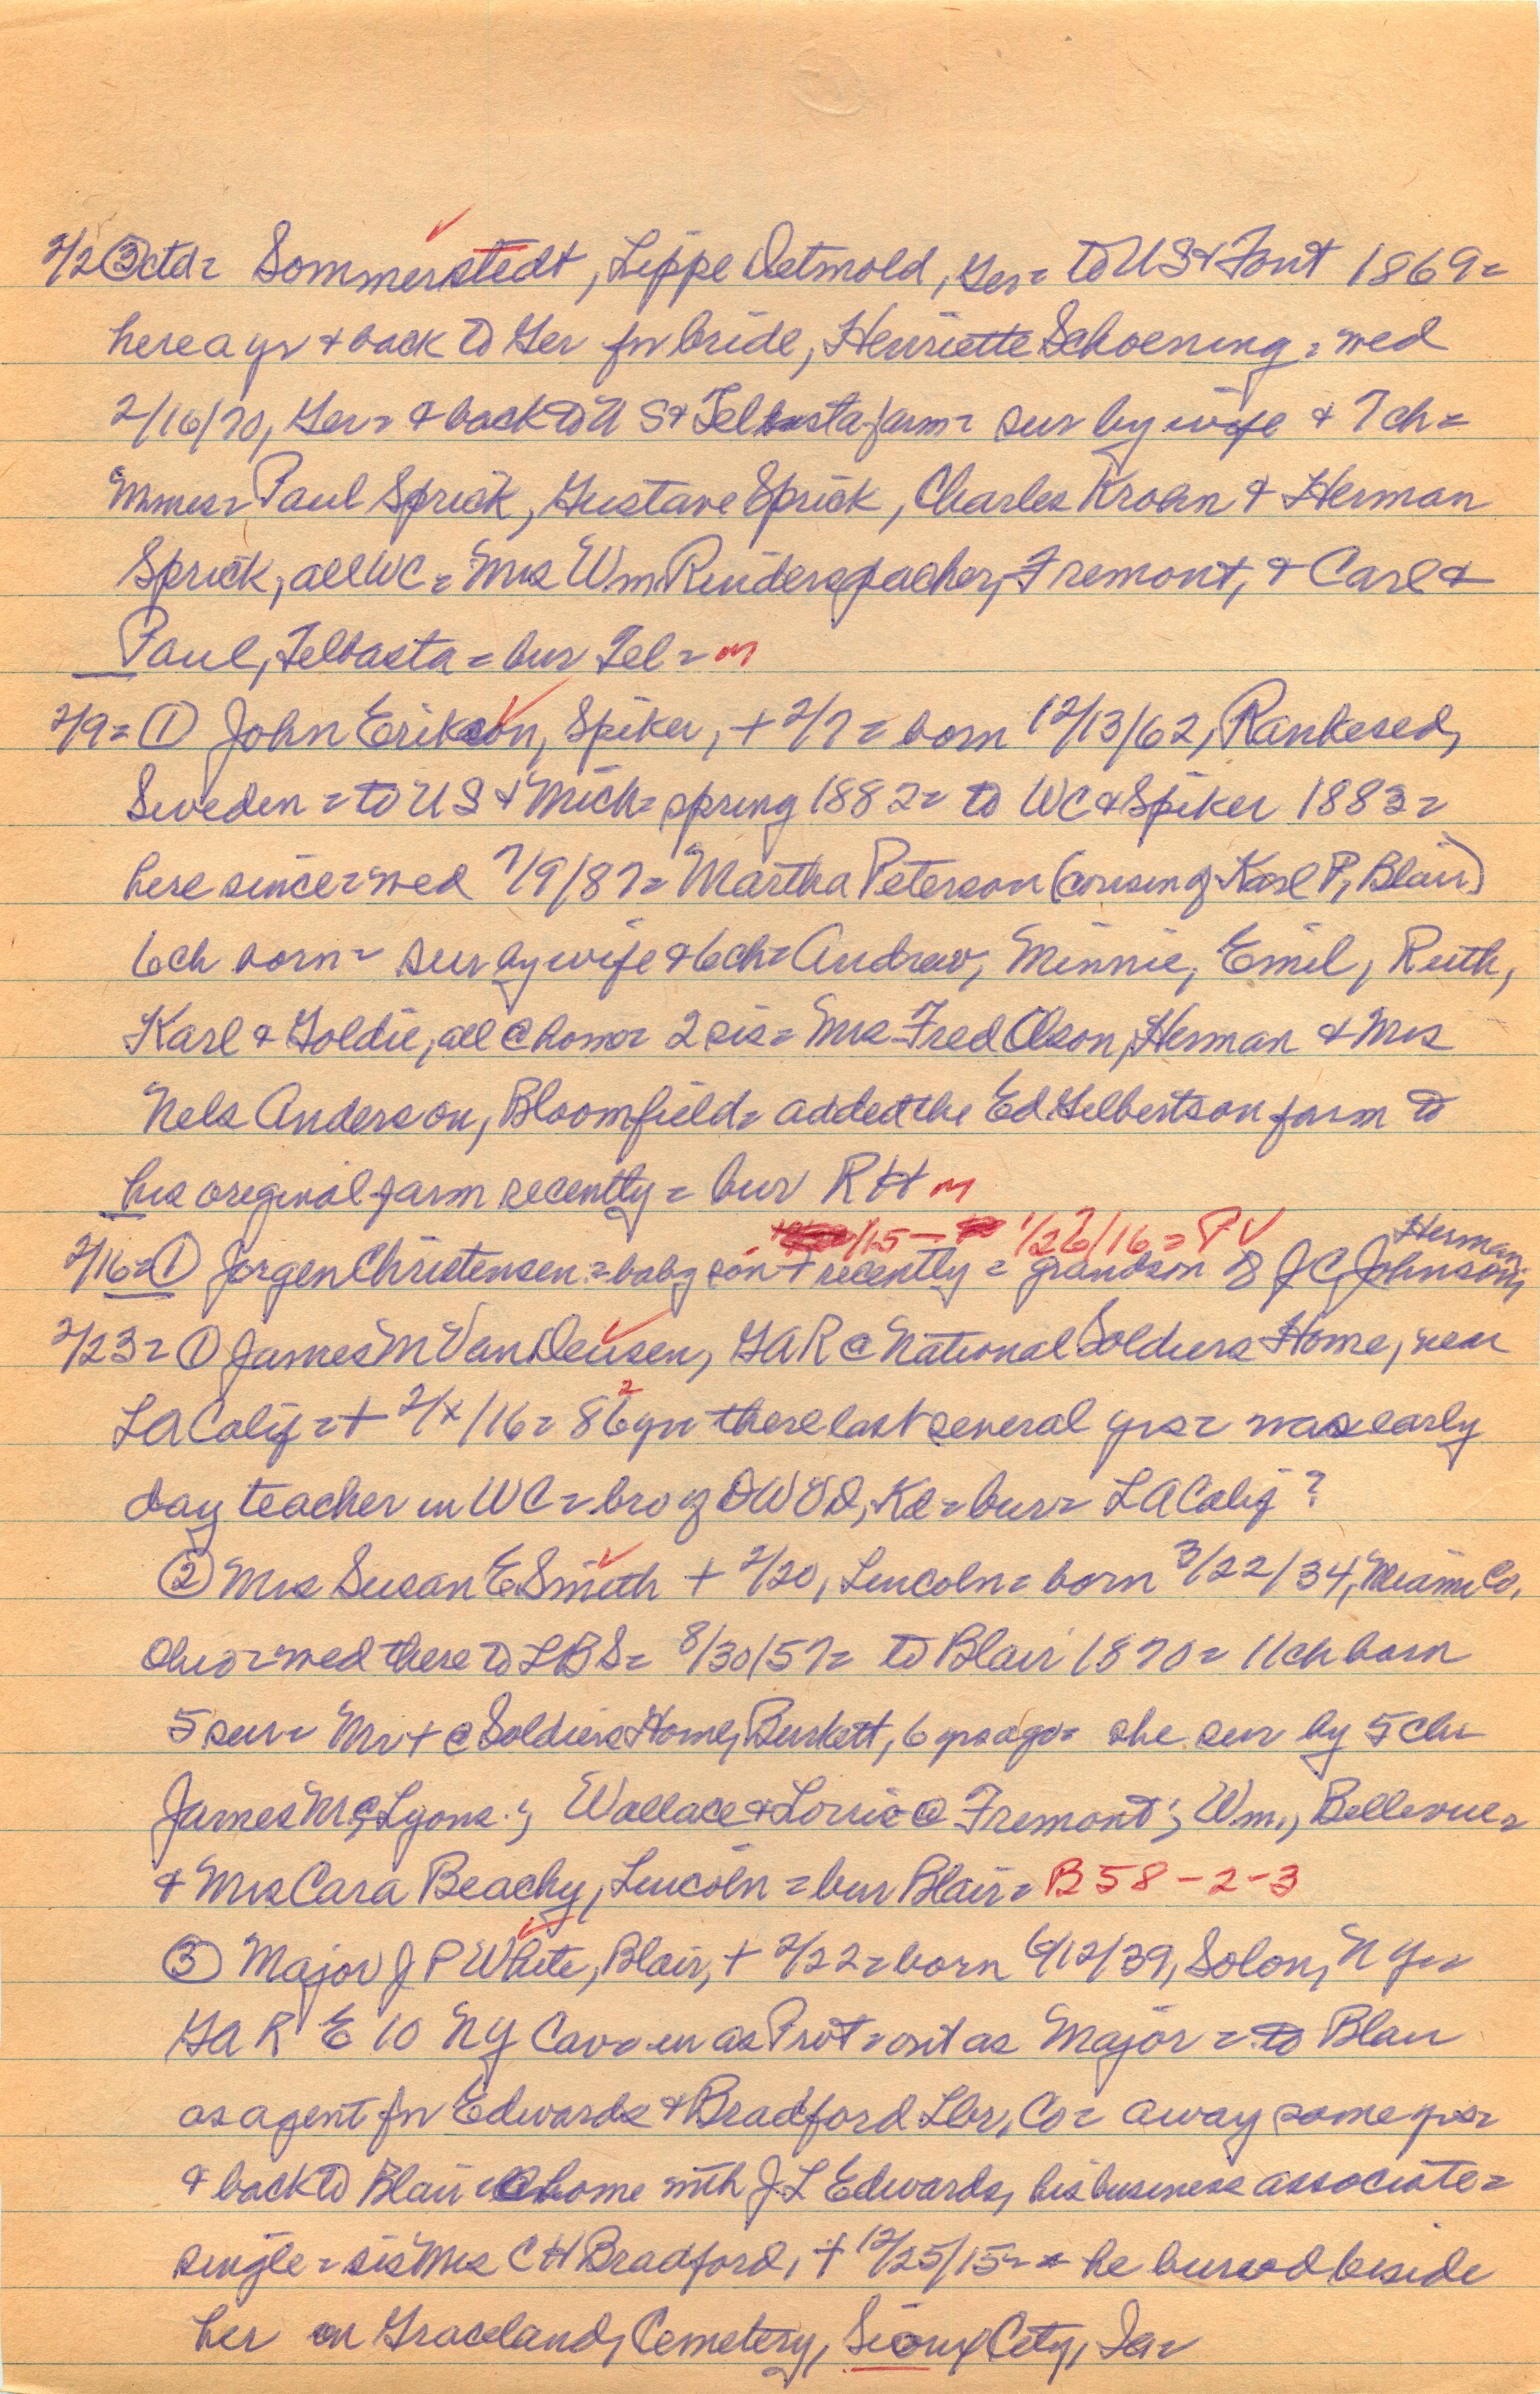 2/2 ③ ctd= Sommerstedt, Lippe Detmold, Ger= to US & Font 1869=
here a yr & back to Ger for bride, Henriette Schoening = wed
2/16/70, Ger= & back to US & Telbasta farm= sur by wife & 7 ch=
Mmes= Paul Sprick, Gustave Sprick, Charles Krohn & Herman
Sprick, all WC = Mrs Wm. Rinderspacher, Fremont, & Carl &
Paul, Telbasta = bur Tel = m
2/9= ① John Erikson, Spiker, + 2/7 = born 12/13/62, Rankesed,
Sweden = to US & Mich= spring 1882= to WC & Spiker 1883=
here since= wed 7/9/87= Martha Peterson (cousin of Karl P, Blair)
6 ch born= sur by wife & 6 ch= Andrew, Minnie, Emil, Ruth,
Karl & Goldie, all @ home= 2 sis= Mrs Fred Olson, Herman & Mrs
Nels Anderson, Bloomfield= added the Ed Gilbertson farm to
his original farm recently = bur RH m
/15 — 1/26/16 = PV
2/16= ① Jorgen Christensen = baby son + recently = grandson of J C Johnson, Herman
2/23= ① James M Van Deusen, GAR @ National Soldiers Home, near
LA Calif = + 2/x/16= 86 2 yr= there last several yrs= was early
day teacher in WC = bro of DWVD, Kd = bur= LA Calif ?
② Mrs Susan E Smith + 2/20, Lincoln = born 3/22/34, Miami Co,
Ohio = wed there to LBS= 8/30/57= to Blair 1870= 11 ch born
5 sur= Mr + @ Soldiers Home, Burkett, 6 yrs ago= she sur by 5 ch=
James M @ Lyons.; Wallace & Lorris @ Fremont; Wm., Bellevue=
& Mrs Cara Beachy, Lincoln = bur Blair= B 58 - 2 - 3
③ Major J P White, Blair, + 2/22= born 6/12/39, Solon, N Y=
GAR E 10 NY Cav= in as Prvt= out as Major = to Blair
as agent for Edwards & Bradford Lbr, Co= away some yrs=
& back to Blair @ home with J. L Edwards, his business associate=
single = sis Mrs C H Bradford, + 12/25/15= he buried beside
her in Graceland, Cemetery, Sioux City, Ia=